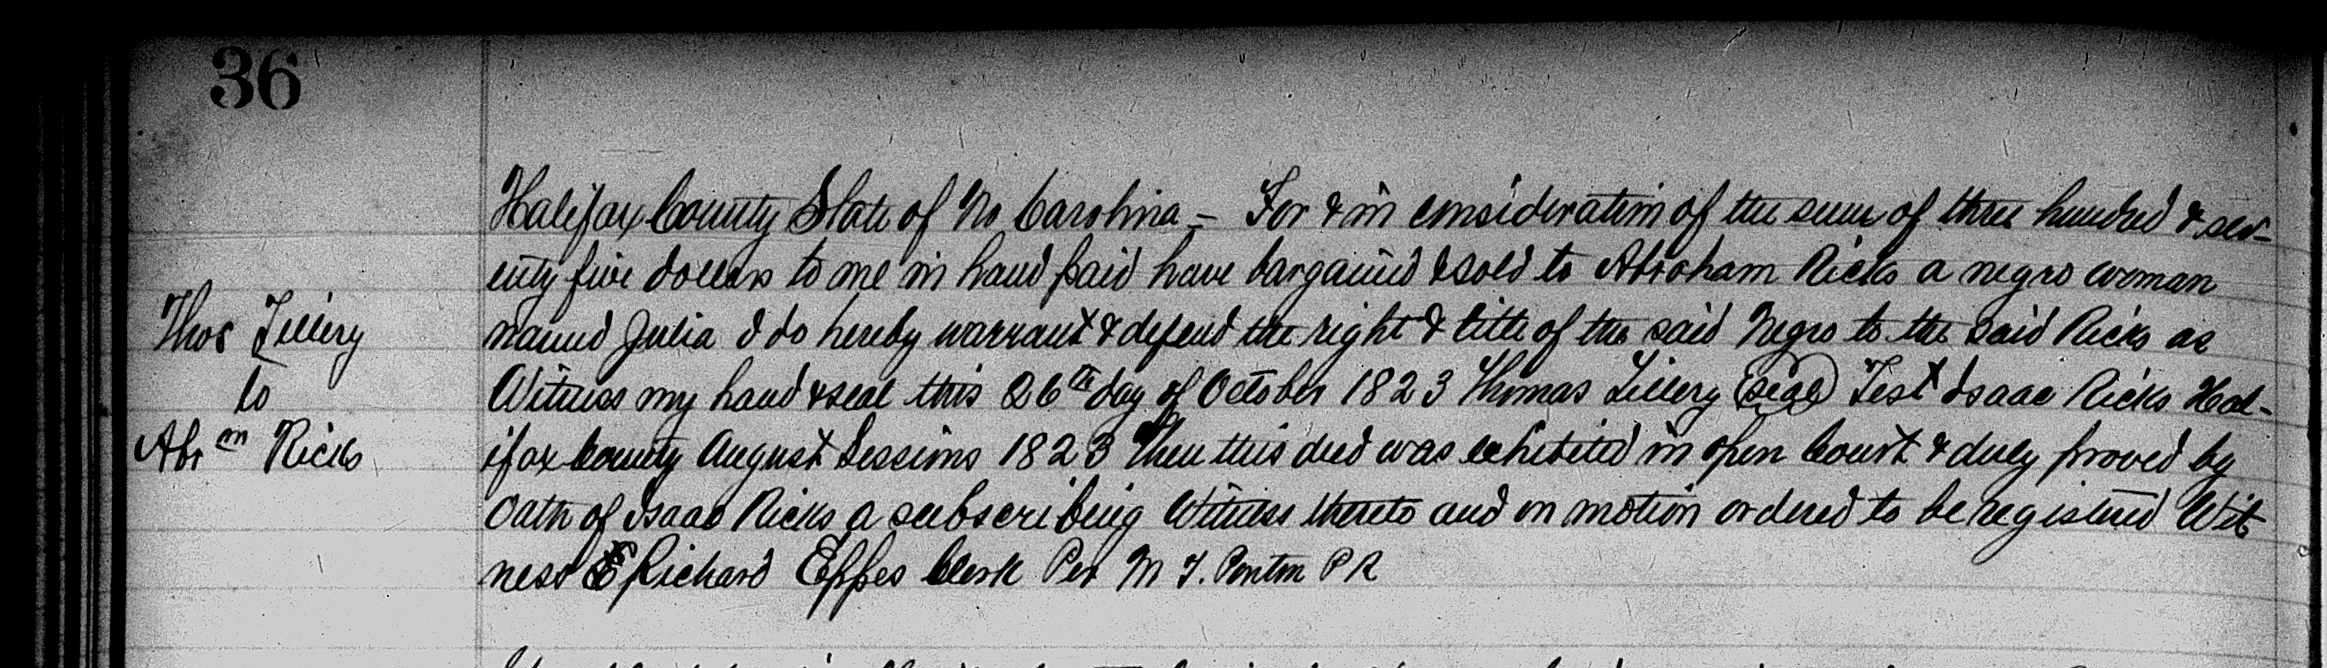 36
Halifax County State of No Carolina - For & in consideration of the sum of three hundred & sev-
enty five dollars to me in hand paid have bargained & sold to Abraham Ricks a negro woman
Thos Tillery
named Julia I do hereby warrant & defend the right & title of the said Negro to the said Ricks as
to
Witness my hand & seal this 26th day of October 1823 Thomas Tillery (seal) Test Isaac Ricks Hal-
Abrm Ricks
ifax County August Sessions 1823 Then this deed was exhibited in open Court & duly proved by
Oath of Isaac Ricks a subscribing Witness thereto and on motion ordered to be registered Wit
ness Richard Eppes Clerk Per M T. Ponton P R